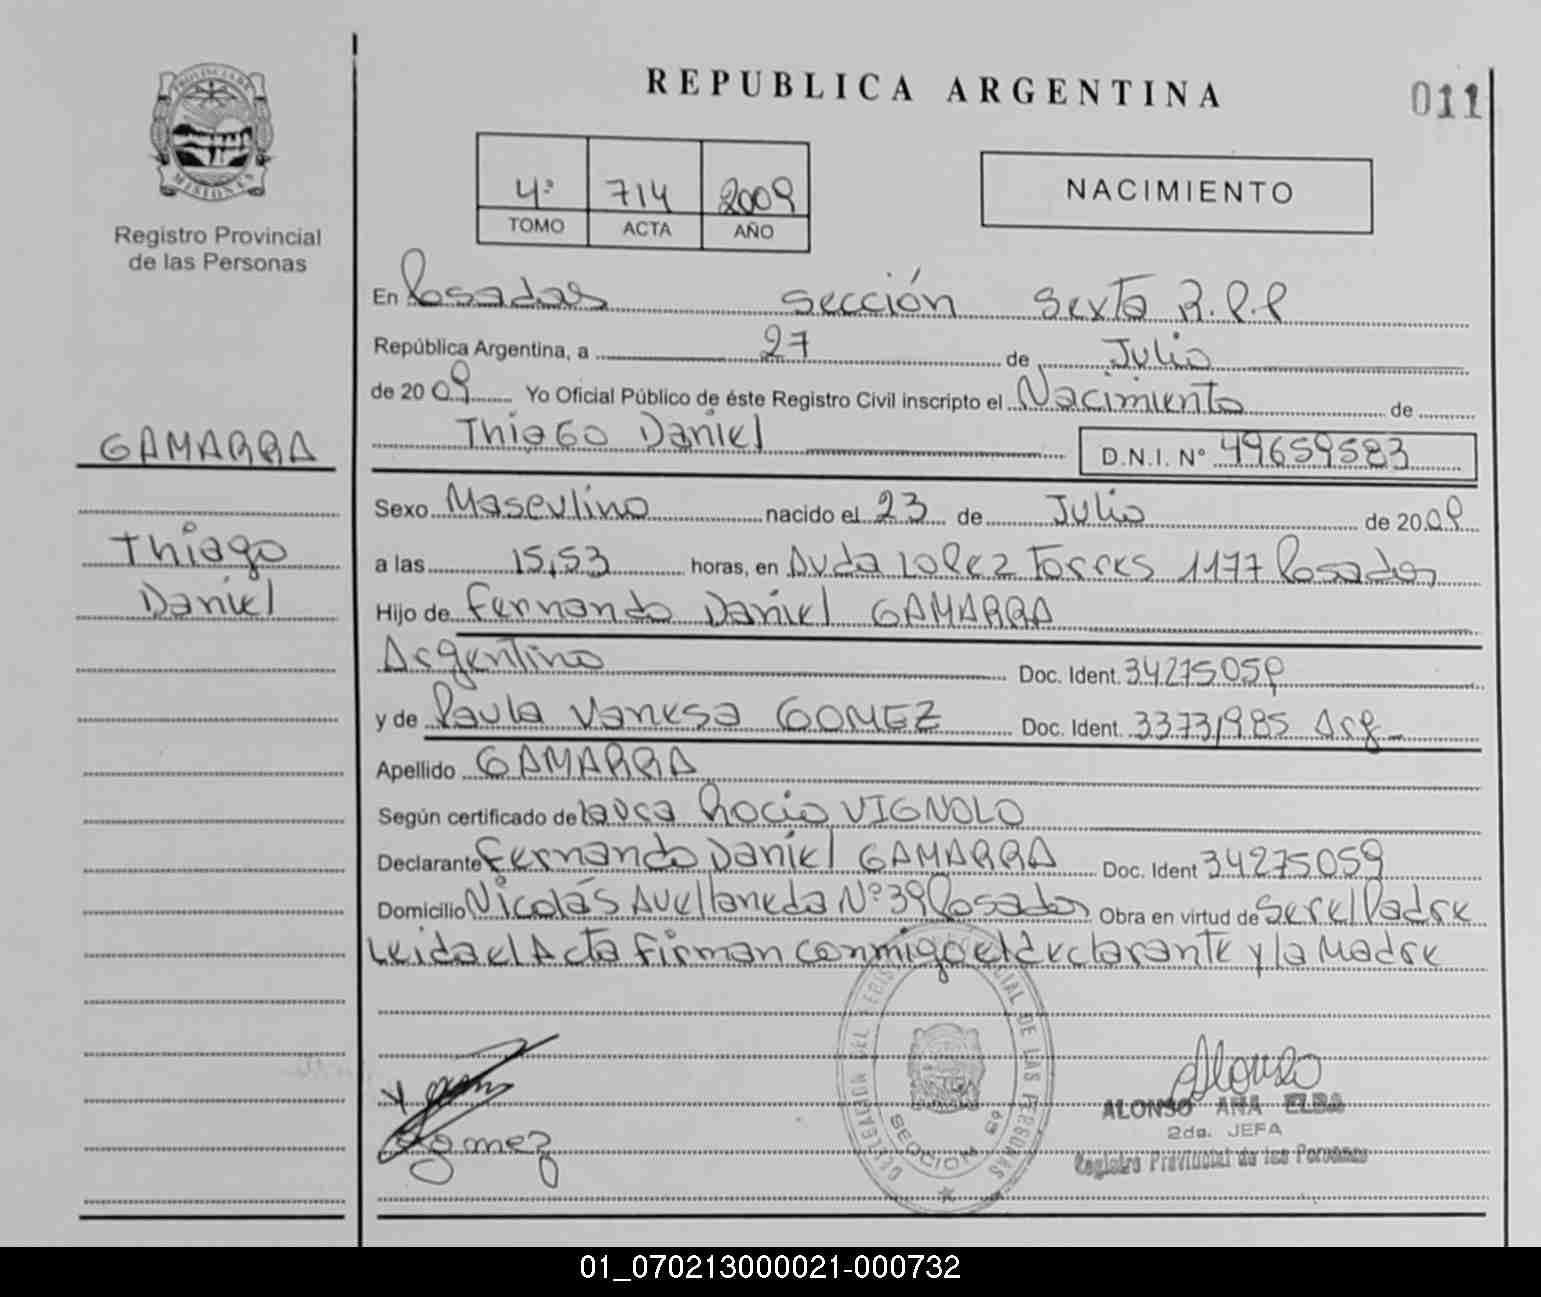 REPUBLICA ARGENTINA
011
PROVINCIA DE
MISIONES
Registro Provincial
de las Personas
4º 714 2009
TOMO ACTA AÑO
NACIMIENTO
En Posadas Sección Sexta R.P.P
República Argentina, a 27 de Julio
de 2009 Yo Oficial Público de éste Registro Civil inscripto el Nacimiento de
Thiago Daniel D.N.I. Nº 49659583
GAMARRA
Thiago
Daniel
Sexo Masculino nacido el 23 de Julio de 2009
a las 15,53 horas, en Avda Lopez Torres 1177 Posadas
Hijo de Fernando Daniel GAMARRA
Argentino Doc. Ident. 34275059
y de Paula Vanesa GOMEZ Doc. Ident. 33731985 Arg
Apellido GAMARRA
Según certificado de Laura Rocio VIGNOLO
Declarante Fernando Daniel GAMARRA Doc. Ident 34275059
Domicilio Nicolás Avellaneda Nº 39 Posadas Obra en virtud de Ser el Padre
Leida el Acta firman conmigo el declarante y la Madre
DELEGACION DEL REGISTRO PROVINCIAL DE LAS PERSONAS
SECCION 6º
Gomez
Alonso
ALONSO ANA ELBA
2da. JEFA
Registro Provincial de las Personas
01_070213000021-000732